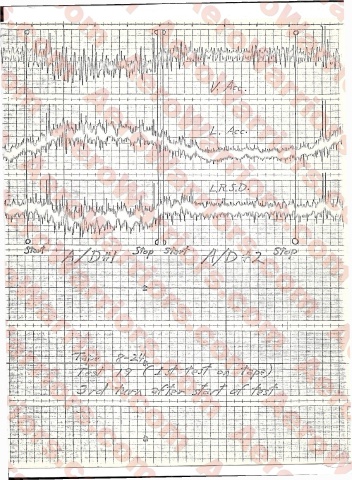 V. Acc.
L. Acc.
L.R.S.D.
Start A/D #1 Stop Start A/D #2 Stop
Tape
Test 19 (1st test on tape)
3rd turn after start of test